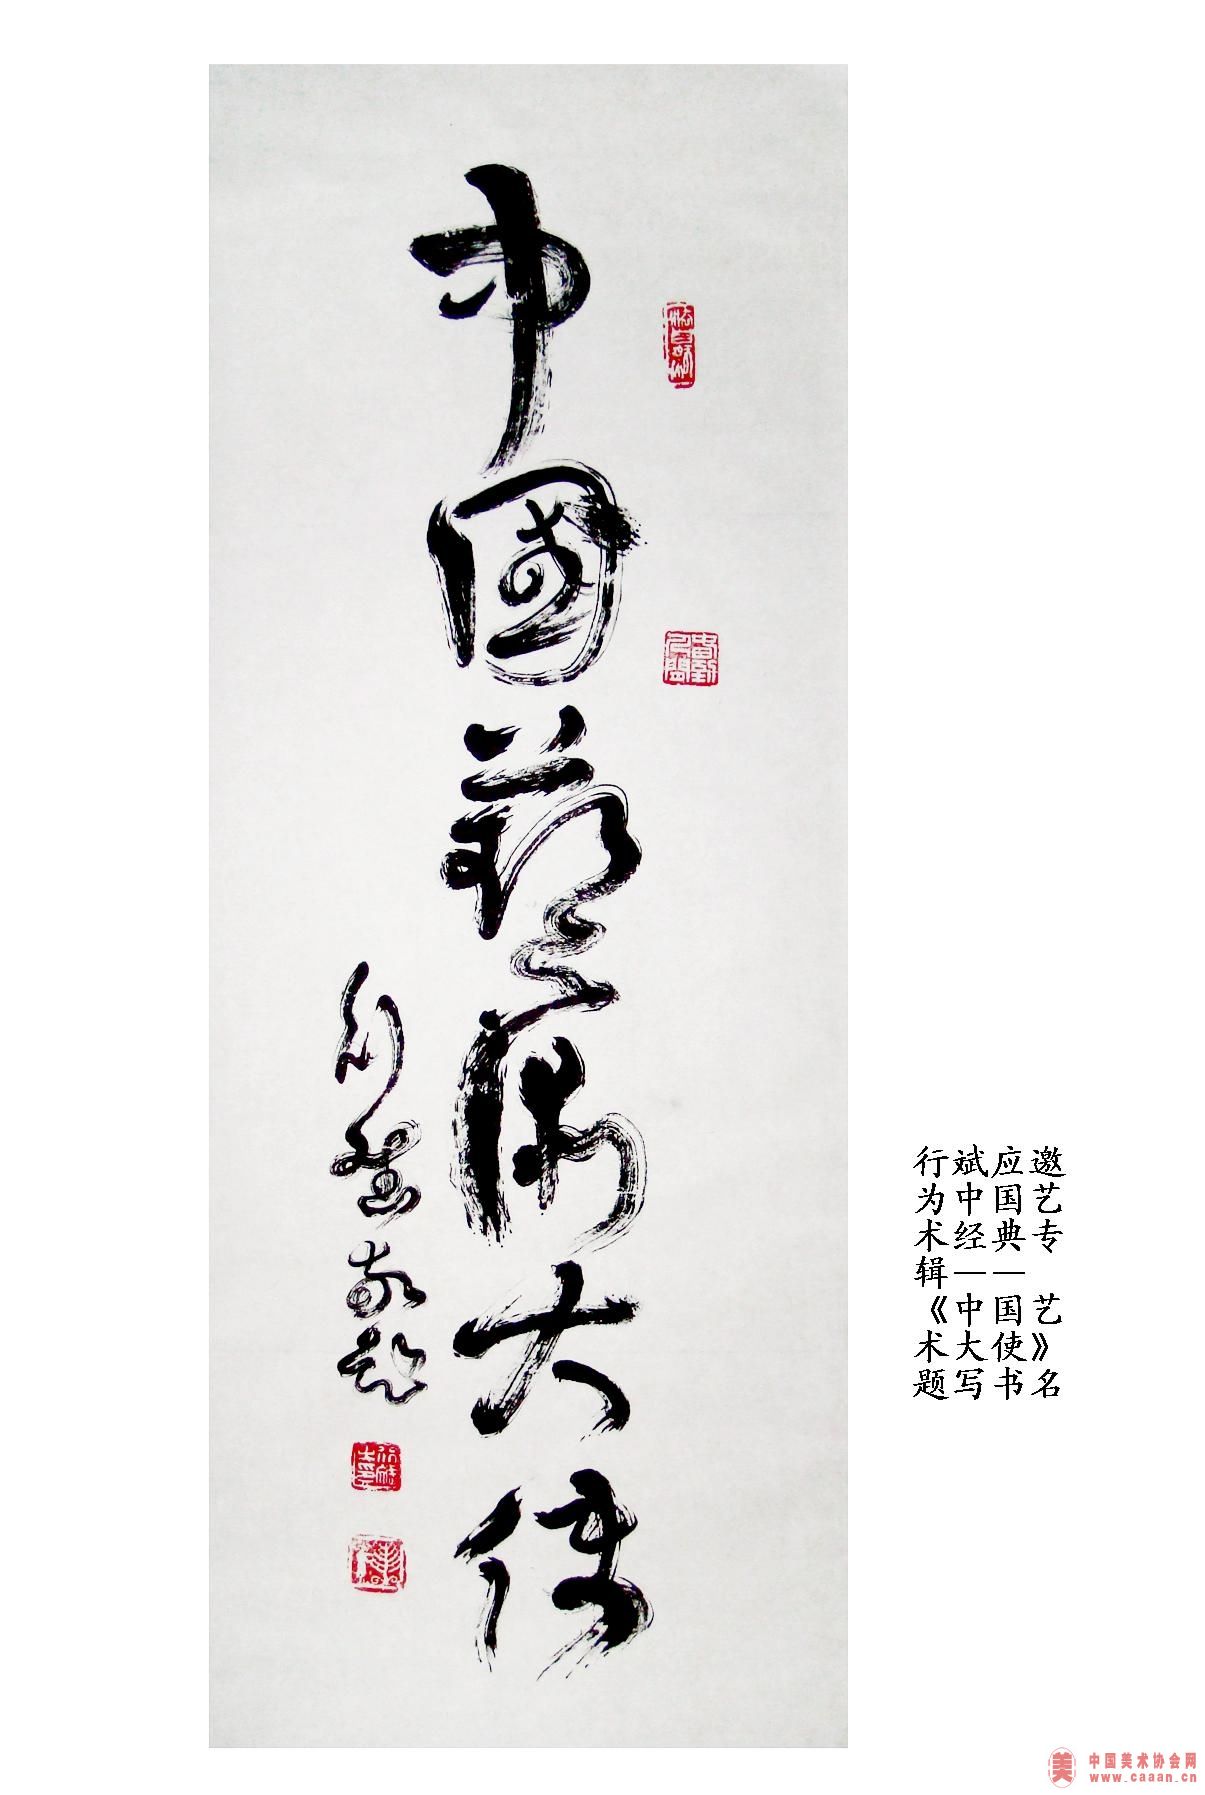 中國藝術大使
行斌应邀
为中国艺
术经典专
辑——
《中国艺
术大使》
题写书名
美
中国美术协会网
www.caaan.cn